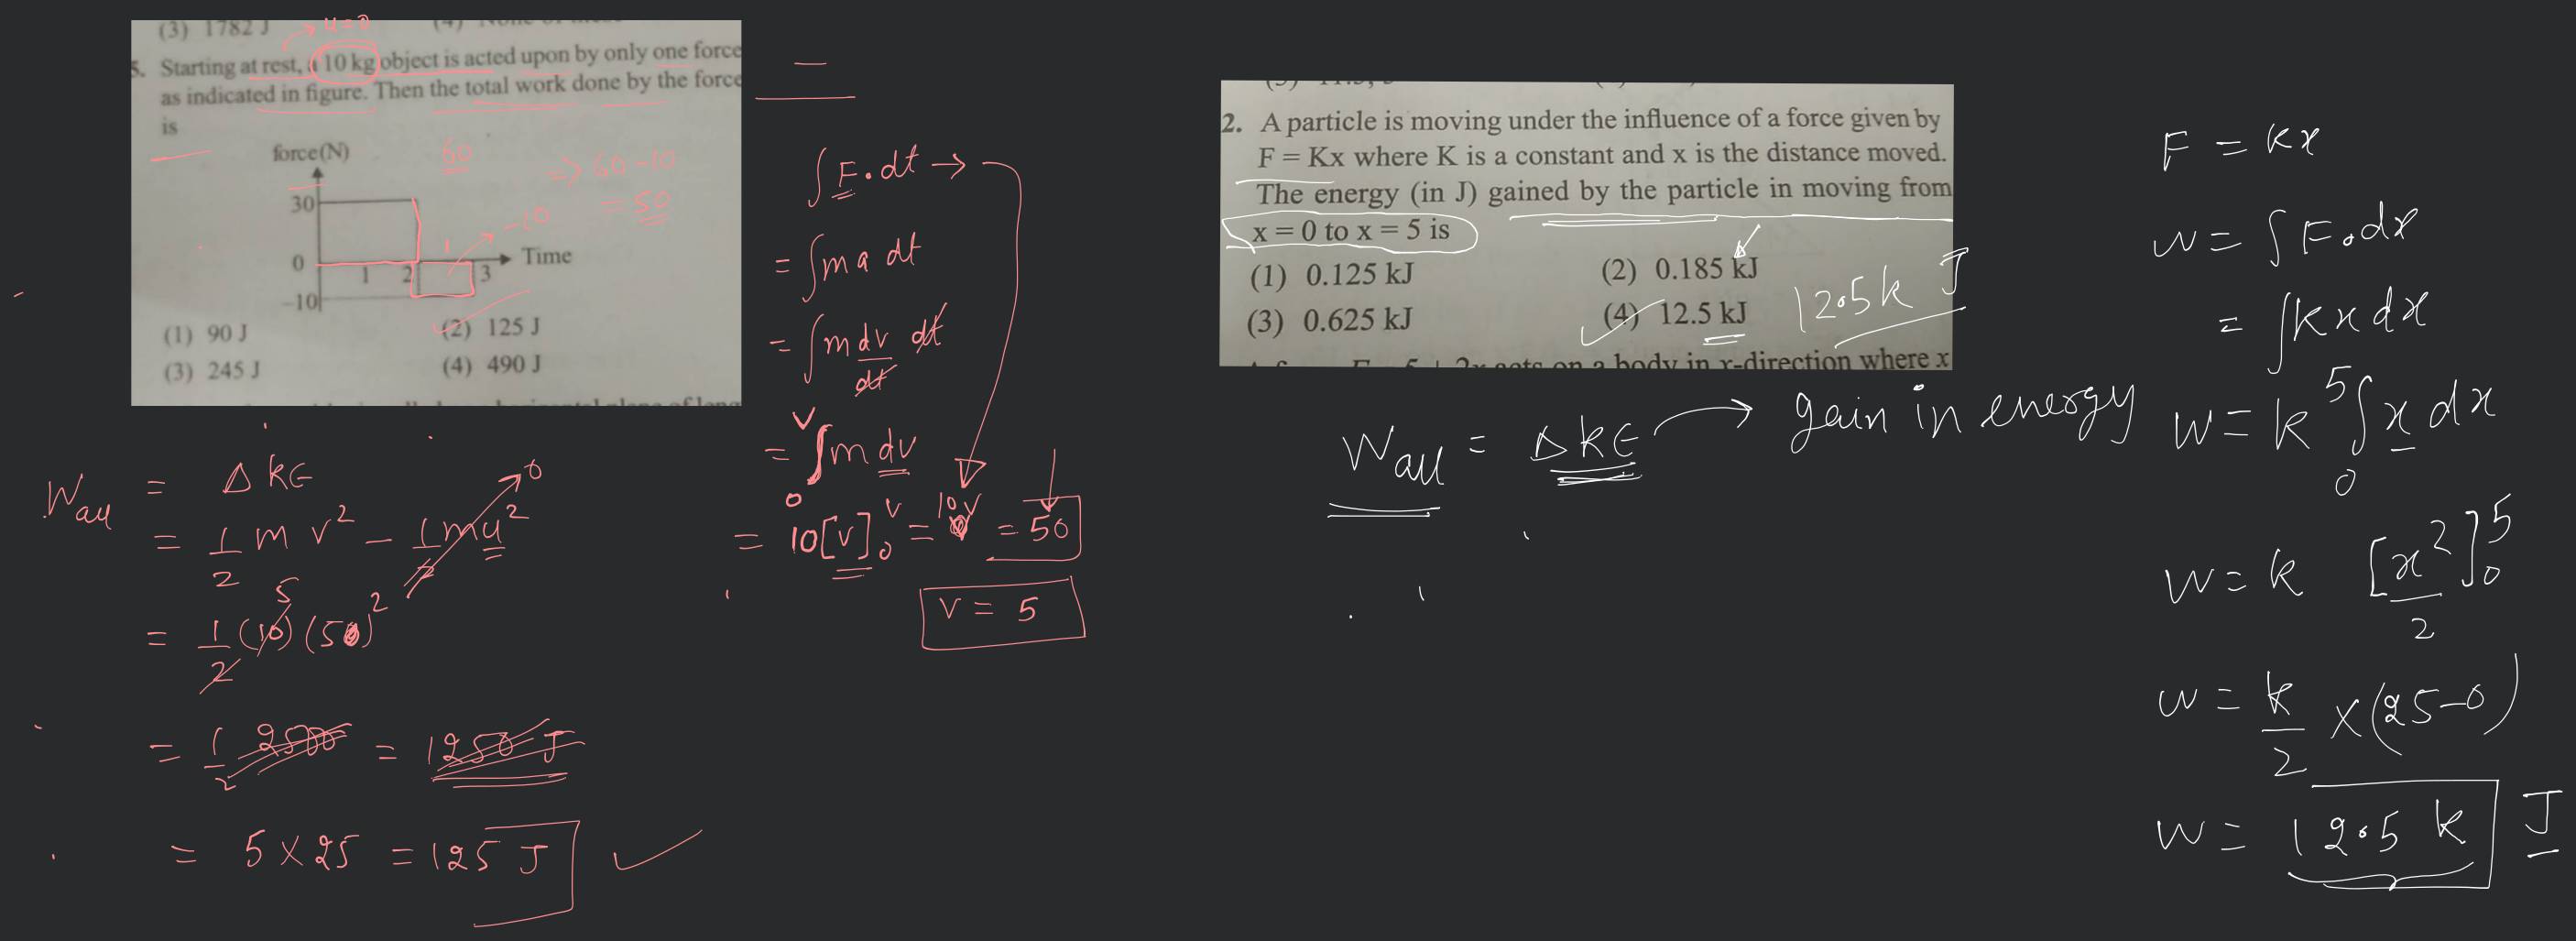 (3) 1782 J
u=0
5. Starting at rest, a 10 kg object is acted upon by only one force
as indicated in figure. Then the total work done by the force
is
force(N)
60
=> 60-10
= 50
30
-10
1
0
1
2
3
Time
-10
(1) 90 J
(2) 125 J
(3) 245 J
(4) 490 J
W all = Δ KE
= 1/2 m v² - 1/2 m u² 0
= 1/2 (10) (50)² 5
= 1/2 2500 = 1250 J
= 5 × 25 = 125 J
∫ F . dt →
= ∫ m a dt
= ∫ m dv/dt dt
= ∫ m dv
v
0
= 10 [v] v 0 = 10v = 50
v = 5
2. A particle is moving under the influence of a force given by
F = Kx where K is a constant and x is the distance moved.
The energy (in J) gained by the particle in moving from
x = 0 to x = 5 is
(1) 0.125 kJ
(2) 0.185 kJ
(3) 0.625 kJ
(4) 12.5 kJ
12.5 k J
2x acts on a body in x-direction where x
W all = Δ KE → gain in energy
F = kx
W = ∫ F . dx
= ∫ kx dx
W = k 5 ∫ 0 x dx
W = k [x²/2] 5 0
W = k/2 × (25-0)
W = 12.5 k J